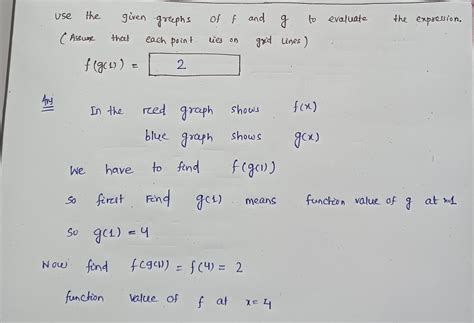 use the given graphs of f and g to evaluate the expression.
(Assume that each point lies on grid lines)
f(g(1)) = 2
Ans
In the rced graph shows f(x)
blue graph shows g(x)
We have to find f(g(1))
so first Find g(1) means function value of g at x=1
So g(1) = 4
Now find f(g(1)) = f(4) = 2
function value of f at x=4